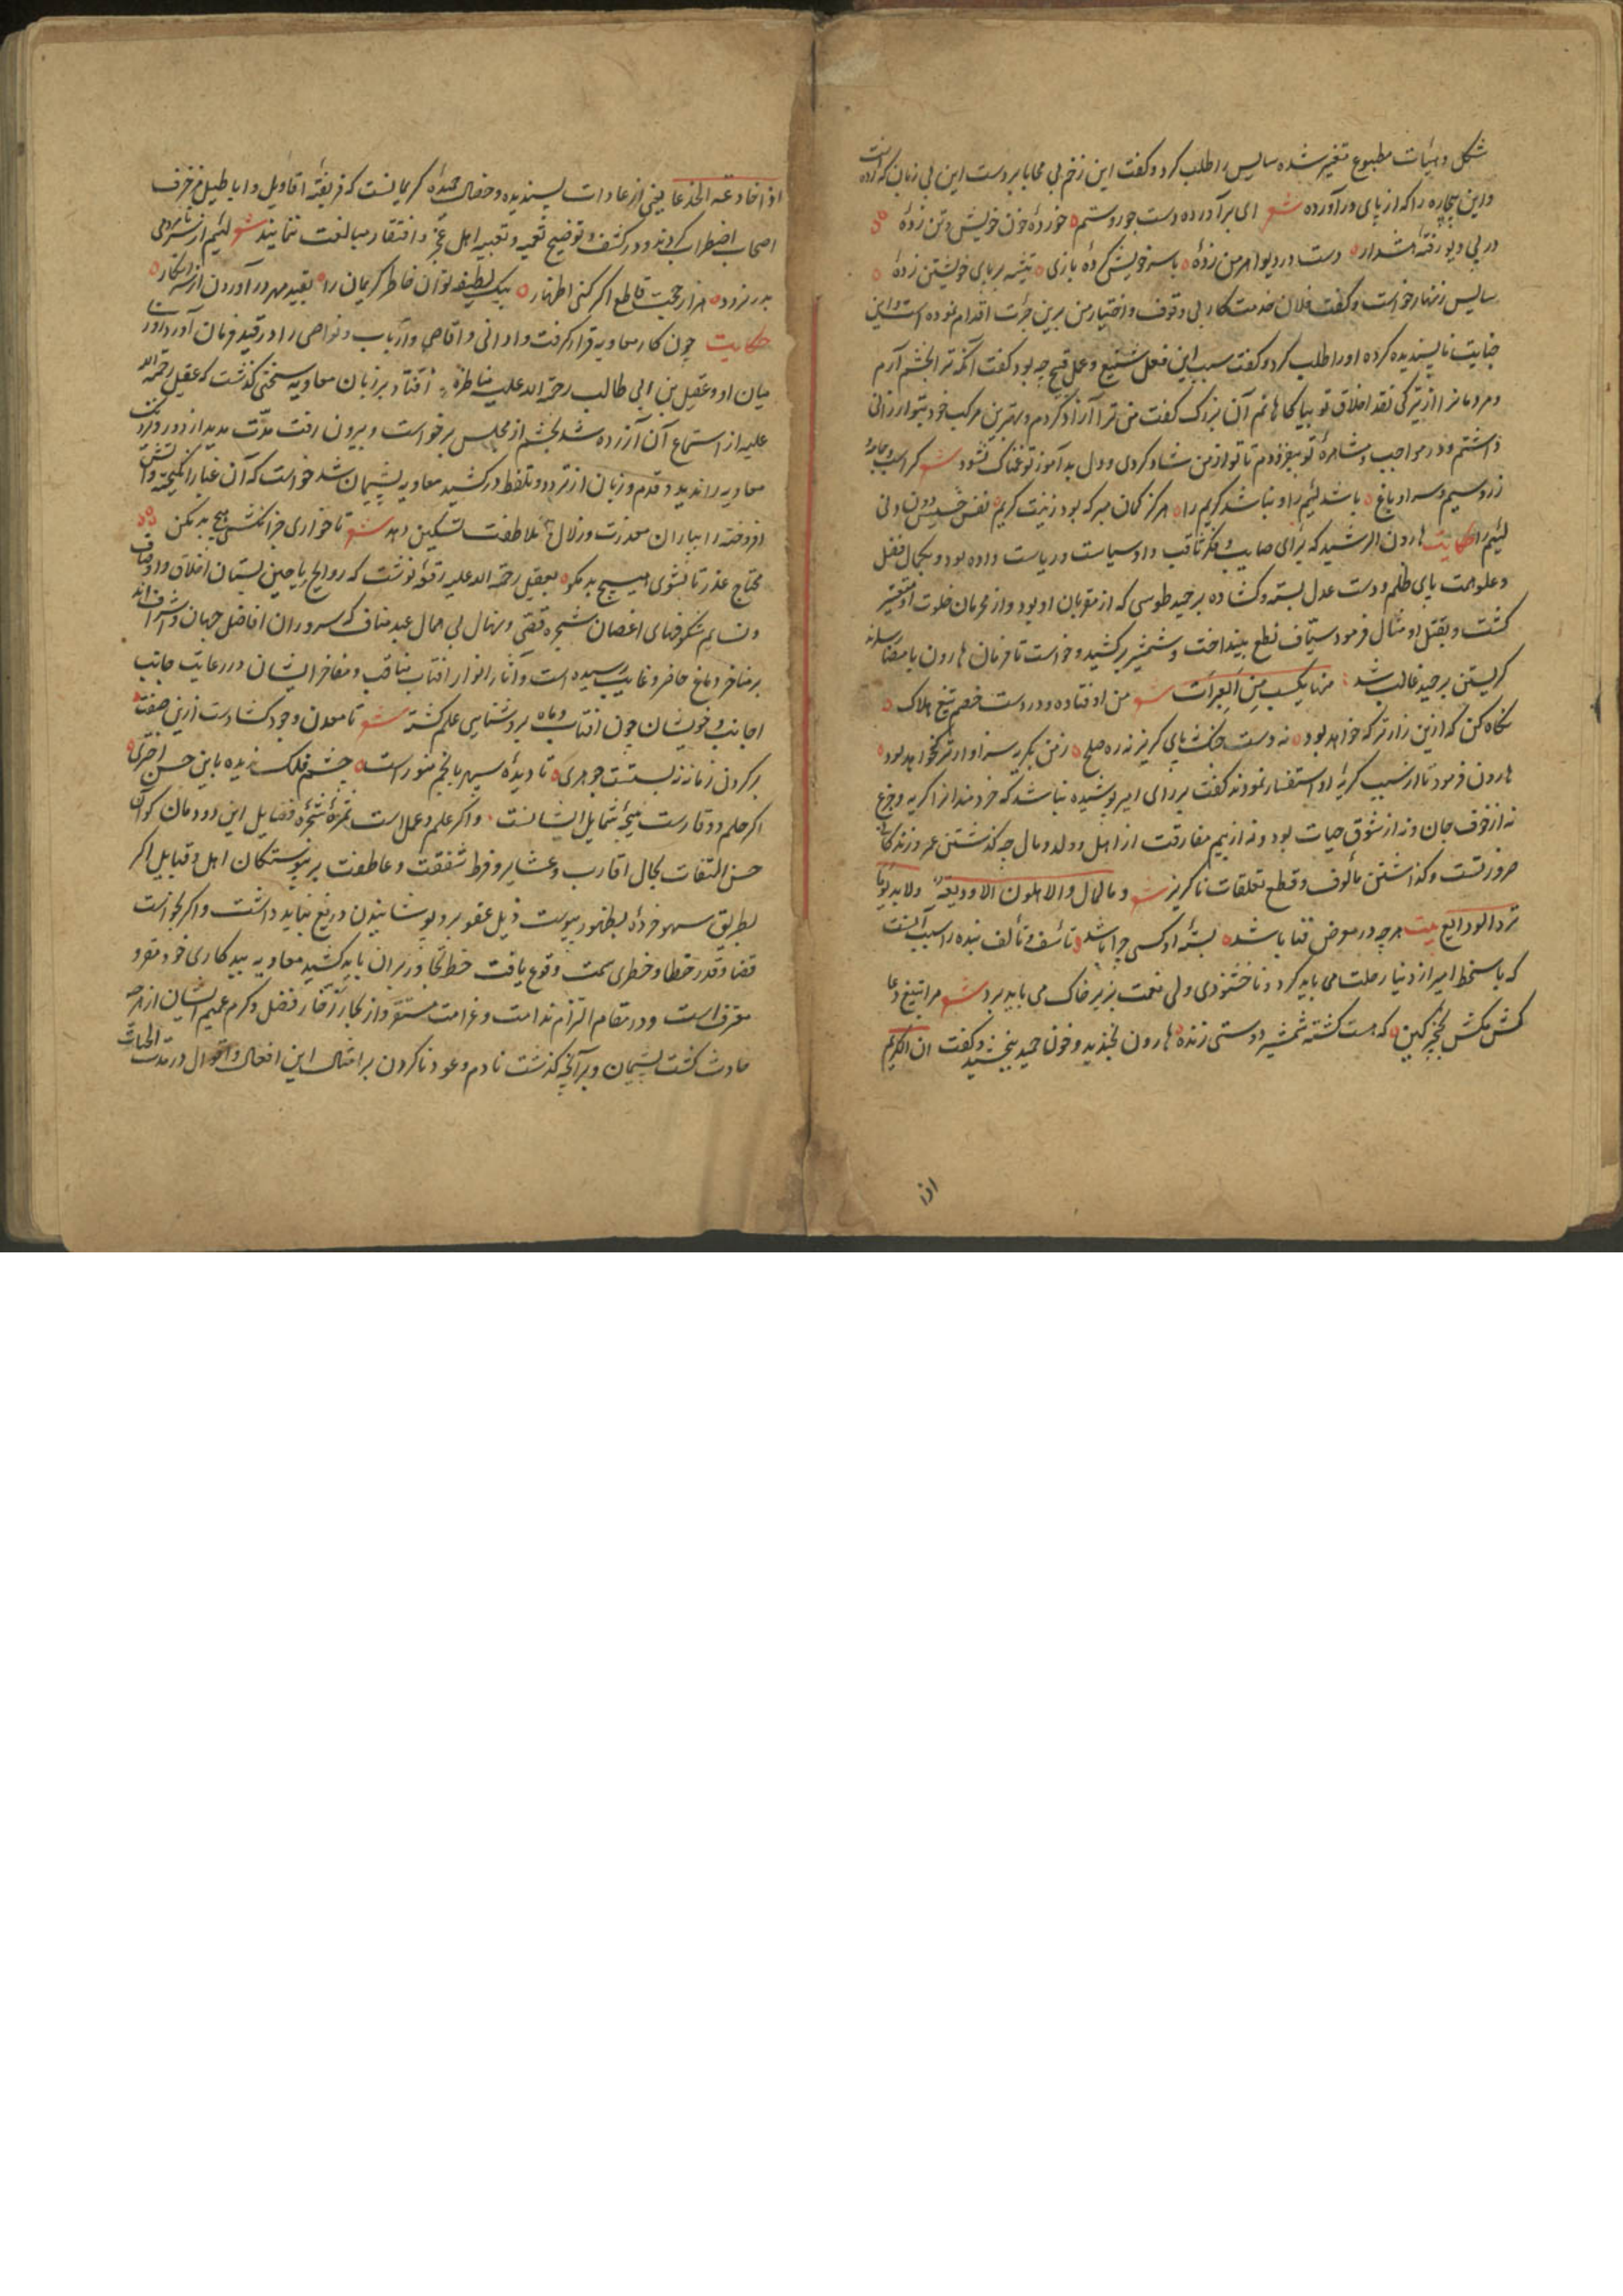 شکل و هیأت مطبوع متغیر شده سایس را طلب کرد و کفت این زخم بی محابا بر دست این بی زبان که زده است
و این بیچاره را که از پای در آورده شعر ای بر آورده دست جور و ستم خورده خون خویش و تن زده
در پی دیو رفته دست در دیوار من زده با سر خویش کرده بازی تیشه بر پای خویشتن زده
سایس زنهار خواست و کفت فلان خدمت کار بی وقوف و اختیار من برین جرئت اقدام نموده است و این
جنایت ناپسندیده کرده او را طلب کرد و کفت سبب این فعل شنیع و عمل قبیح چه بود کفت آنکه ترا بخشم آرم
و مردمانرا از تیرکی نقد اخلاق تو بیاکاهانم آن بزرک کفت من ترا آزاد کردم و بهترین مرکب خود بتو ارزانی
داشتم و در مواجب و مشاهره تو بیفزودم تا تو از من شاد کردی و دل بدآموز تو غمناک شود شعر کر اسب و جامه و
زر و سیم و سرا و باغ باشد لئیم را و نباشد کریم را هرکز کمان مبر که بود زینت کریم نفس خسیس دون دنی
لئیم را حکایت هارون الرشید که برای صایب و فکر ثاقب داد سیاست و ریاست داده بود و بکمال فضل
و علو همت پای ظلم و دست عدل بسته و کشاده بر حمید طوسی که از مقربان او بود و از محرمان خلوت او متغیر
کشت و بقتل او مثال فرمود سیاف نطع بینداخت و شمشیر برکشید و خواست تا فرمان هارون بامضا رساند
کریستن بر حمید غالب شد من العبرات شعر من اوفتاده و در دست خصم تیغ هلاک
نکاه کن که ازین زارتر که خواهد بود نه دست جنک نه پای کریز نه ره صلح ز من بکریه سزاوارتر نخواهد بود
هارون فرمود تا از سبب کریه او استفسار نمودند کفت بر رای امیر پوشیده نباشد که خردمند را کریه و جزع
نه از خوف جان و نه از شوق حیات بود و نه از بیم مفارقت از اهل و ولد و مال چه کذشتن عمر و زندکانی
ضروریست و کذاشتن مألوف و قطع تعلقات ناکریز شعر و ما المال و الاهلون الا ودیعة ولا بد یوما
ترد الودایع بیت هر چه در معرض فنا باشد بسته او کسی چرا باشد تأسف و تألف بنده را سبب آنست
که با سخط امیر از دنیا رحلت می باید کرد و ناخشنودی ولی نعمت بزیر خاک می باید برد شعر مرا بتیغ دعا
کش مکش بخنجر کین که هست کشته شمشیر دوستی زنده هارون بخندید و خون حمید ببخشید و کفت ان الکریم
اذا
اذا خادعته انخدعا یعنی از عادات پسندیده و خصال حمیده کریمانست که فریفته اقاویل و اباطیل مزخرف
اصحاب اضطراب کردند و در کشف و توضیح تعمیه و تعبیه اهل عجز و افتقار مبالغت ننمایند شعر لئیم از
بدر نرود هزار حجت قاطع اکر کنی اظهار بیک لطیفه توان خاطر کریمان را بقید مهر در آوردن از سر انکار
حکایت چون کار معاویه قرار کرفت و ادانی و اقاصی و ارباب و نواصی را در قید فرمان آورد روزی
میان او و عقیل بن ابی طالب رحمة الله علیه مناظره افتاد بر زبان معاویه سخنی کذشت که عقیل رحمة الله
علیه از استماع آن آزرده شد بخشم از مجلس برخواست و بیرون رفت مدت مدید از دور و نزدیک
معاویه را ندید و قدم و زبان از تردد و تلفظ درکشید معاویه پشیمان شد خواست که آن غبار انکیخته و آتش
افروخته را بباران معذرت و زلال ملاطفت تسکین دهد شعر تا خواری جزا نکشی هیچ بد مکن
محتاج عذر تا نشوی هیچ بد مکو بعقیل رحمة الله علیه رقعه نوشت که روایح ریاحین بستان اخلاق و اوصاف
و نسایم شکوفهای اغصان شجره قصی و نهال بی همال عبد مناف که سروران افاضل جهان و اشراف اند
بر مناخر دماغ حاضر و غایب رسیده است و آثار انوار افتاب مناقب و مفاخر ایشان در رعایت جانب
اجانب و خویشان چون افتاب و ماه بروشنایی علم کشته شعر تا معدن وجود کشادست ازین صفت
بر کردن زمانه نبستت جوهری تا دیده سپهر بانجم منورست چشم فلک ندیده باین حسن اختری
اکر حلم و وقارست نتیجه شمایل ایشانست و اکر علم و عمل است ثمره شجره فضایل این دودمان کر از
حسن التفات بحال اقارب و عشایر و فرط شفقت و عاطفت بر پیوستکان اهل و قبایل اکر
بطریق سهو خرده بظهور پیوست ذیل عفو برو پوشانیدن دریغ نباید داشت و اکر بخواست
قضا و قدر خطا و خطری سمت وقوع یافت خط تجاوز بران باید کشید معاویه ببد کاری خود مقر و
معترف است و در مقام التزام ندامت و غرامت مستقر و از بحار زخار فضل و کرم عمیم ایشان از هر چه
حادث کشت پشیمان و بر آنچه کذشت نادم و عود ناکردن بر امثال این افعال و اقوال در مدت الحیات